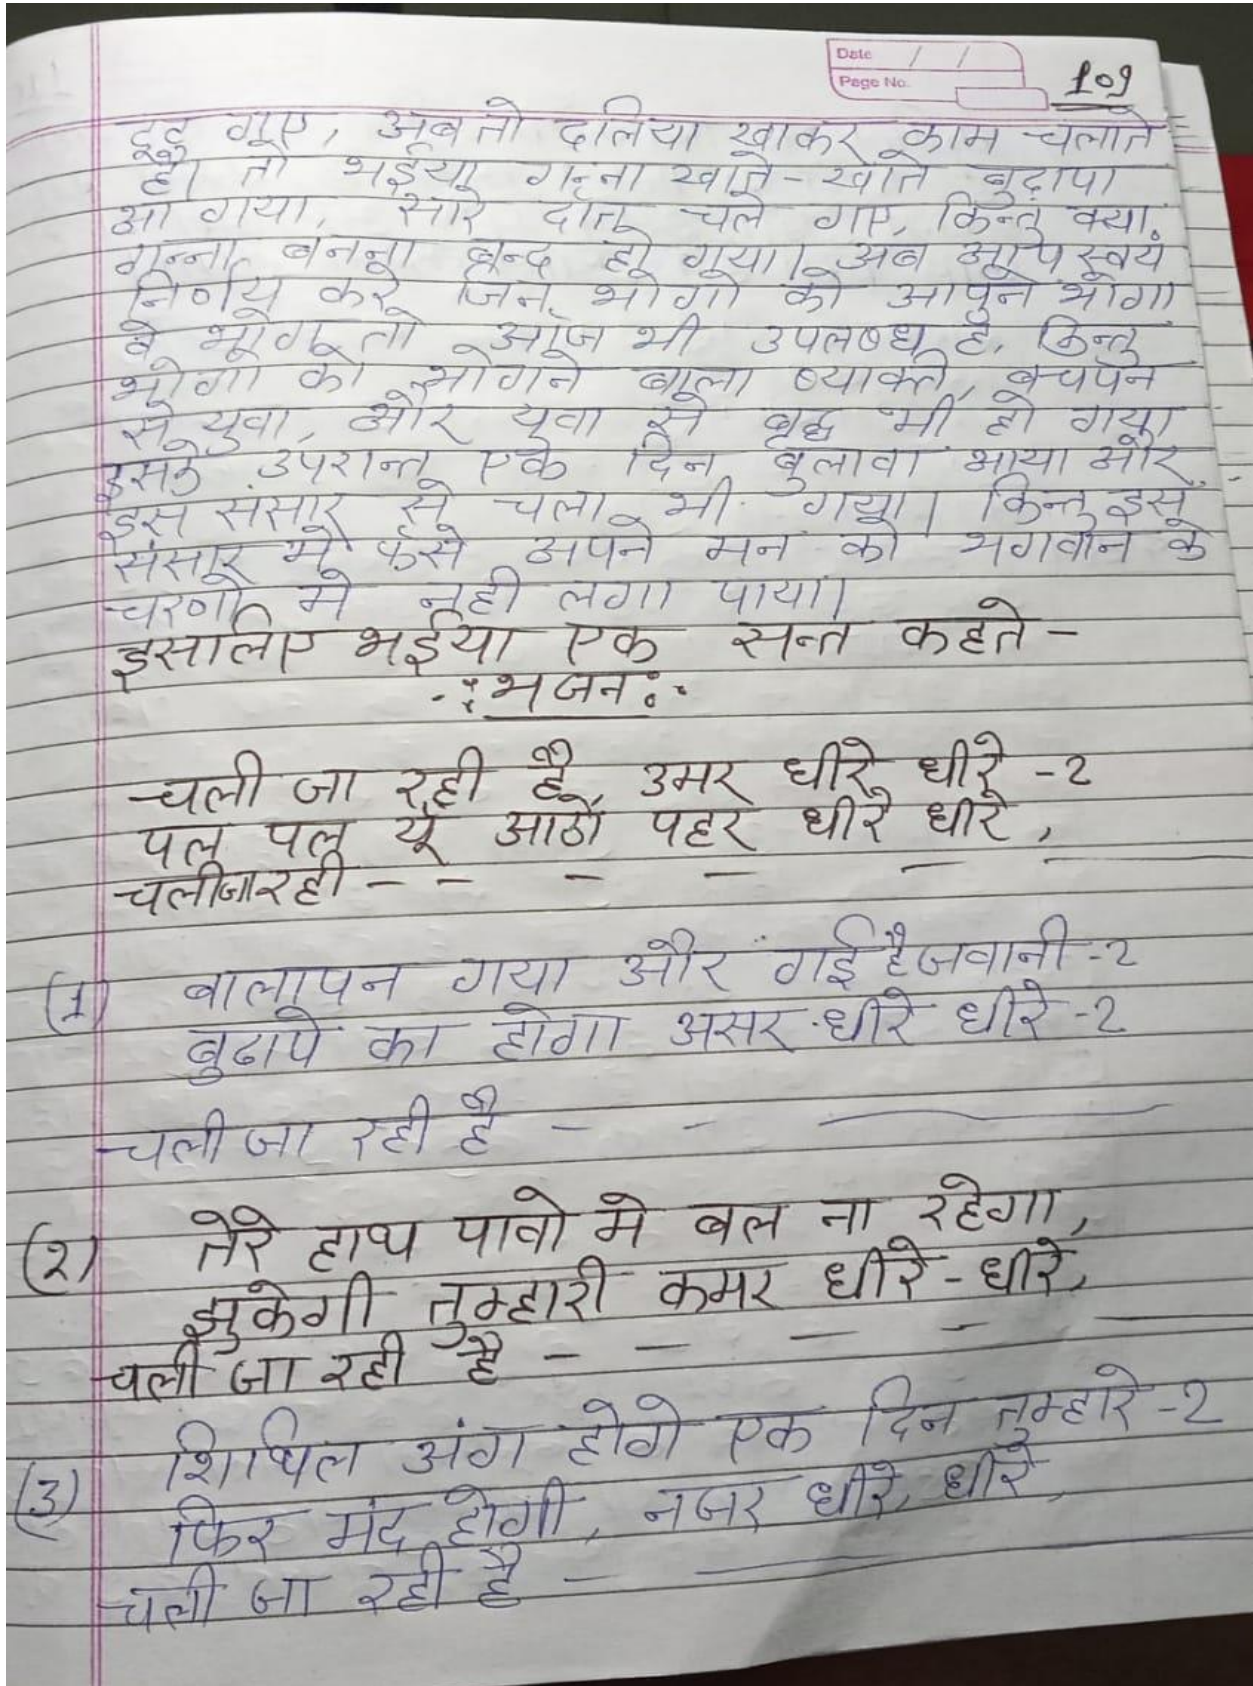 Date / /
Page No.
109
टूट गए, अब तो दलिया खाकर काम चलाते
है। तो भईया गन्ना खाते-खाते बुढ़ापा
आ गया, सारे दाँत चले गए, किन्तु क्या
गन्ना बनना बन्द हो गया। अब आप स्वयं
निर्णय करे जिन भोगो को आपने भोगा
वे भोग तो आज भी उपलब्ध है, किन्तु
भोगो को भोगने वाला व्यक्ति, बचपन
से युवा, और युवा से बृद्ध भी हो गया
इसके उपरान्त एक दिन बुलावा आया और
इस संसार से चला भी गया। किन्तु इस
संसार मे फँसे अपने मन को भगवान के
चरणो मे नही लगा पाया।
इसलिए भईया एक सन्त कहते -
-: भजन :-
चली जा रही है उमर धीरे धीरे -2
पल पल यूँ आठों पहर धीरे धीरे,
चली जा रही - - - - - -
(1) बालापन गया और गई है जवानी -2
बुढापे का होगा असर धीरे धीरे -2
चली जा रही है - - -
(2) तेरे हाथ पावो मे बल ना रहेगा,
झुकेगी तुम्हारी कमर धीरे - धीरे,
चली जा रही है - - - - -
(3) शिथिल अंग होगे एक दिन तुम्हारे -2
फिर मंद होगी, नजर धीरे, धीरे,
चली जा रही है - -